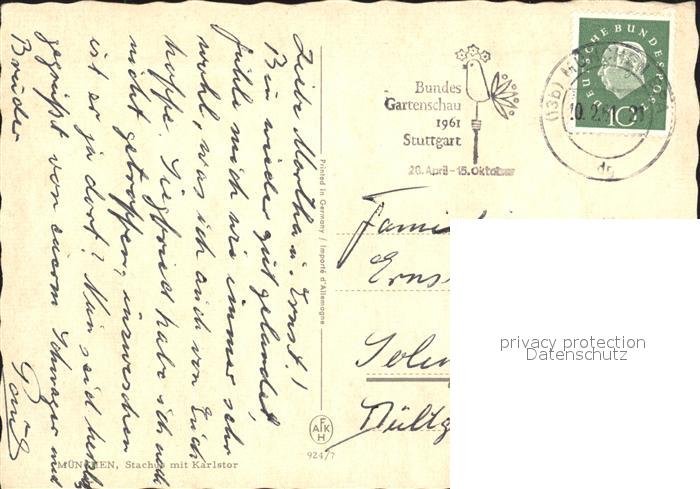 Liebe Martha u. Ernst!
Bin wieder gut gelandet,
fühle mich wie immer sehr
wohl, was ich auch von Euch
hoffe. Siegfried habe ich auch
nicht getroffen, inzwischen
ist er ja dort? Nun seid herzlich
gegrüßt von eurem Schwager und
Bruder
Paul
MÜNCHEN, Stachus mit Karlstor
Printed in Germany / Importé d'Allemagne
AFKH
924/7
Bundes
Gartenschau
1961
Stuttgart
20. April - 15. Oktober
DEUTSCHE BUNDESPOST
10
(13b)
dg
Fami
Erns
privacy protection
Datenschutz